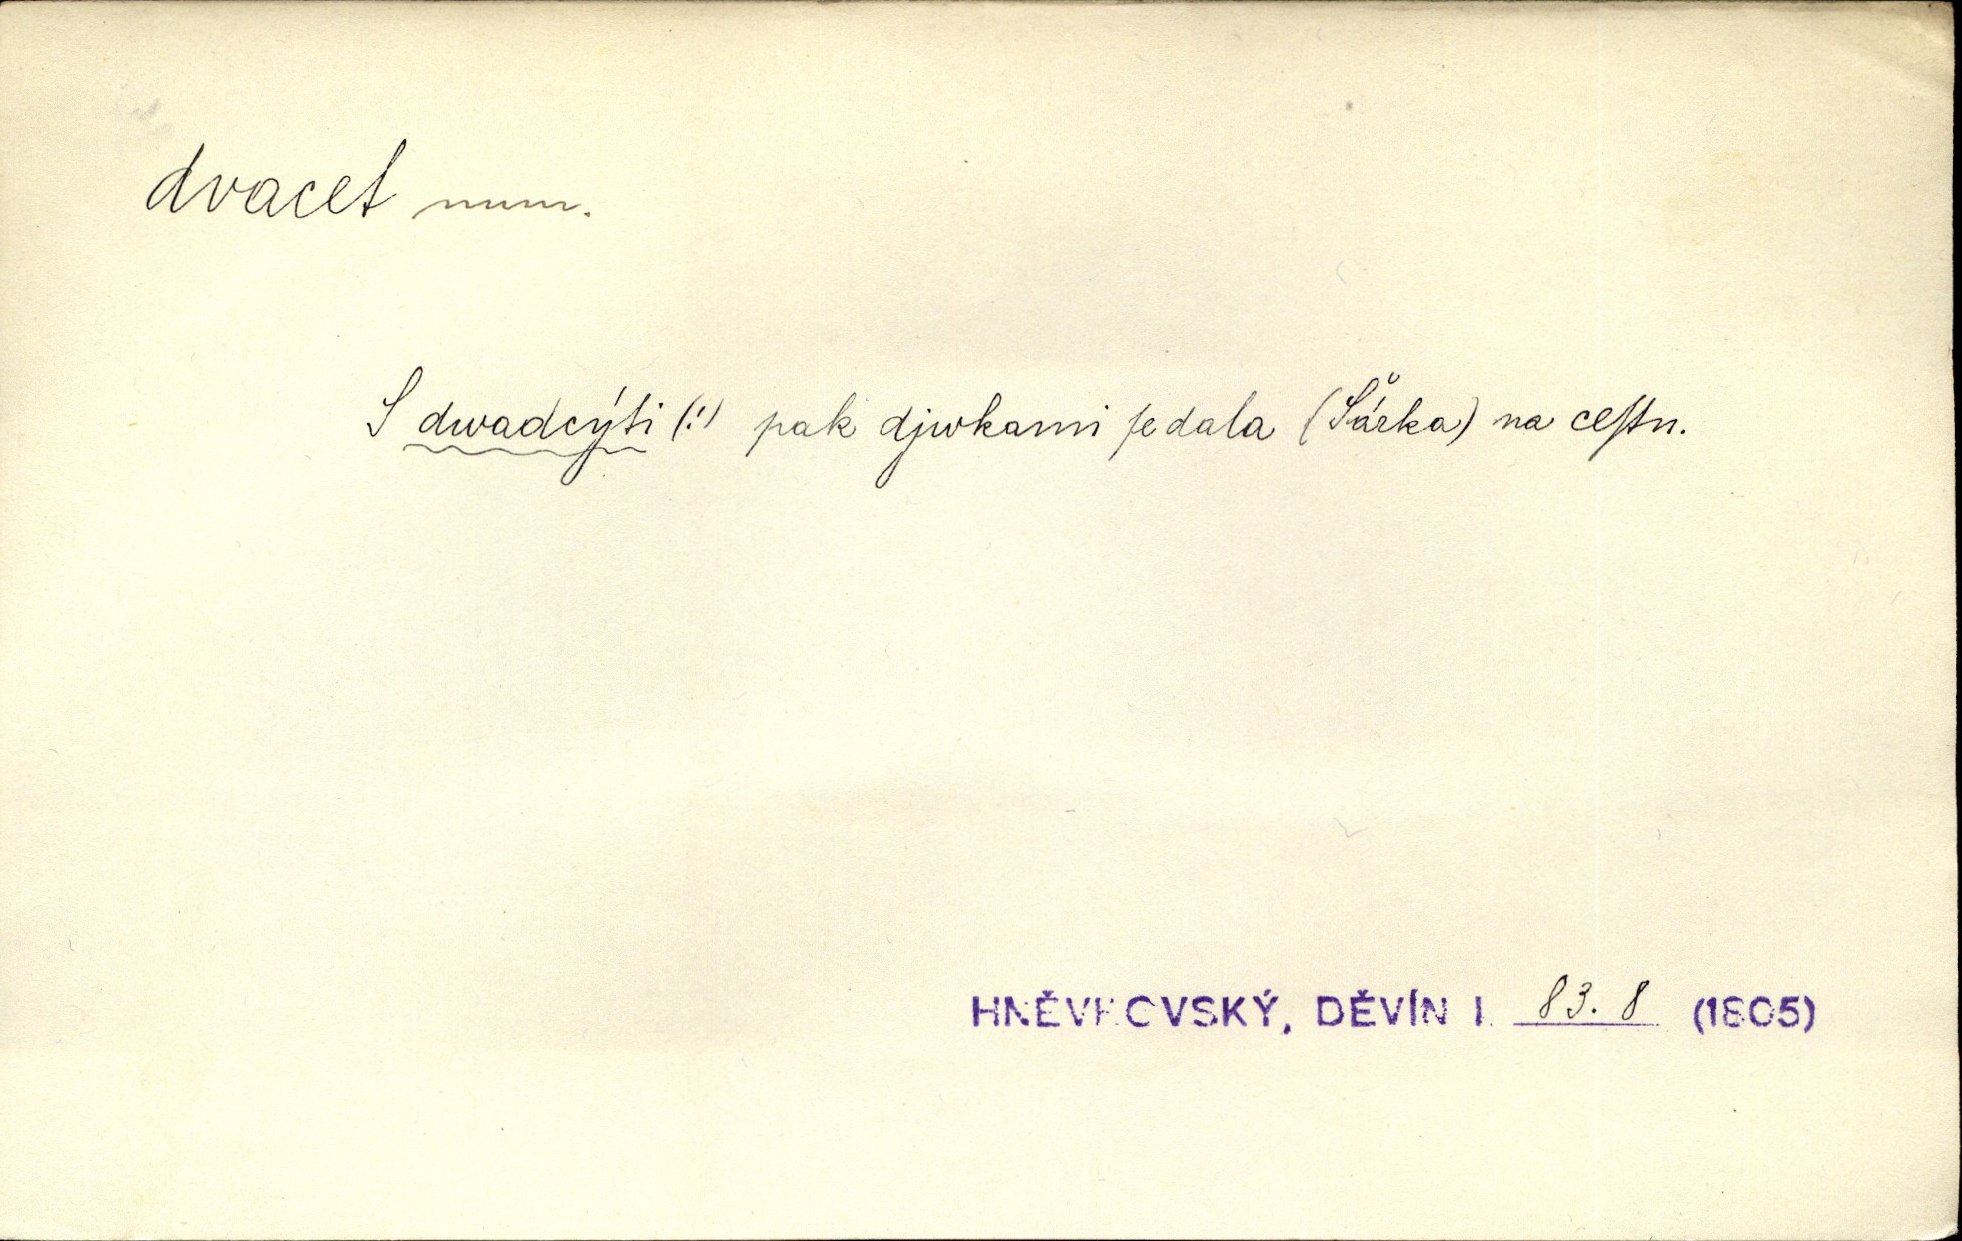 dvacet num.
S dwadcýti (!) pak djwkami ſe dala (Šárka) na ceſtu.
HNĚVKOVSKÝ, DĚVÍN I. 83. 8 (1805)